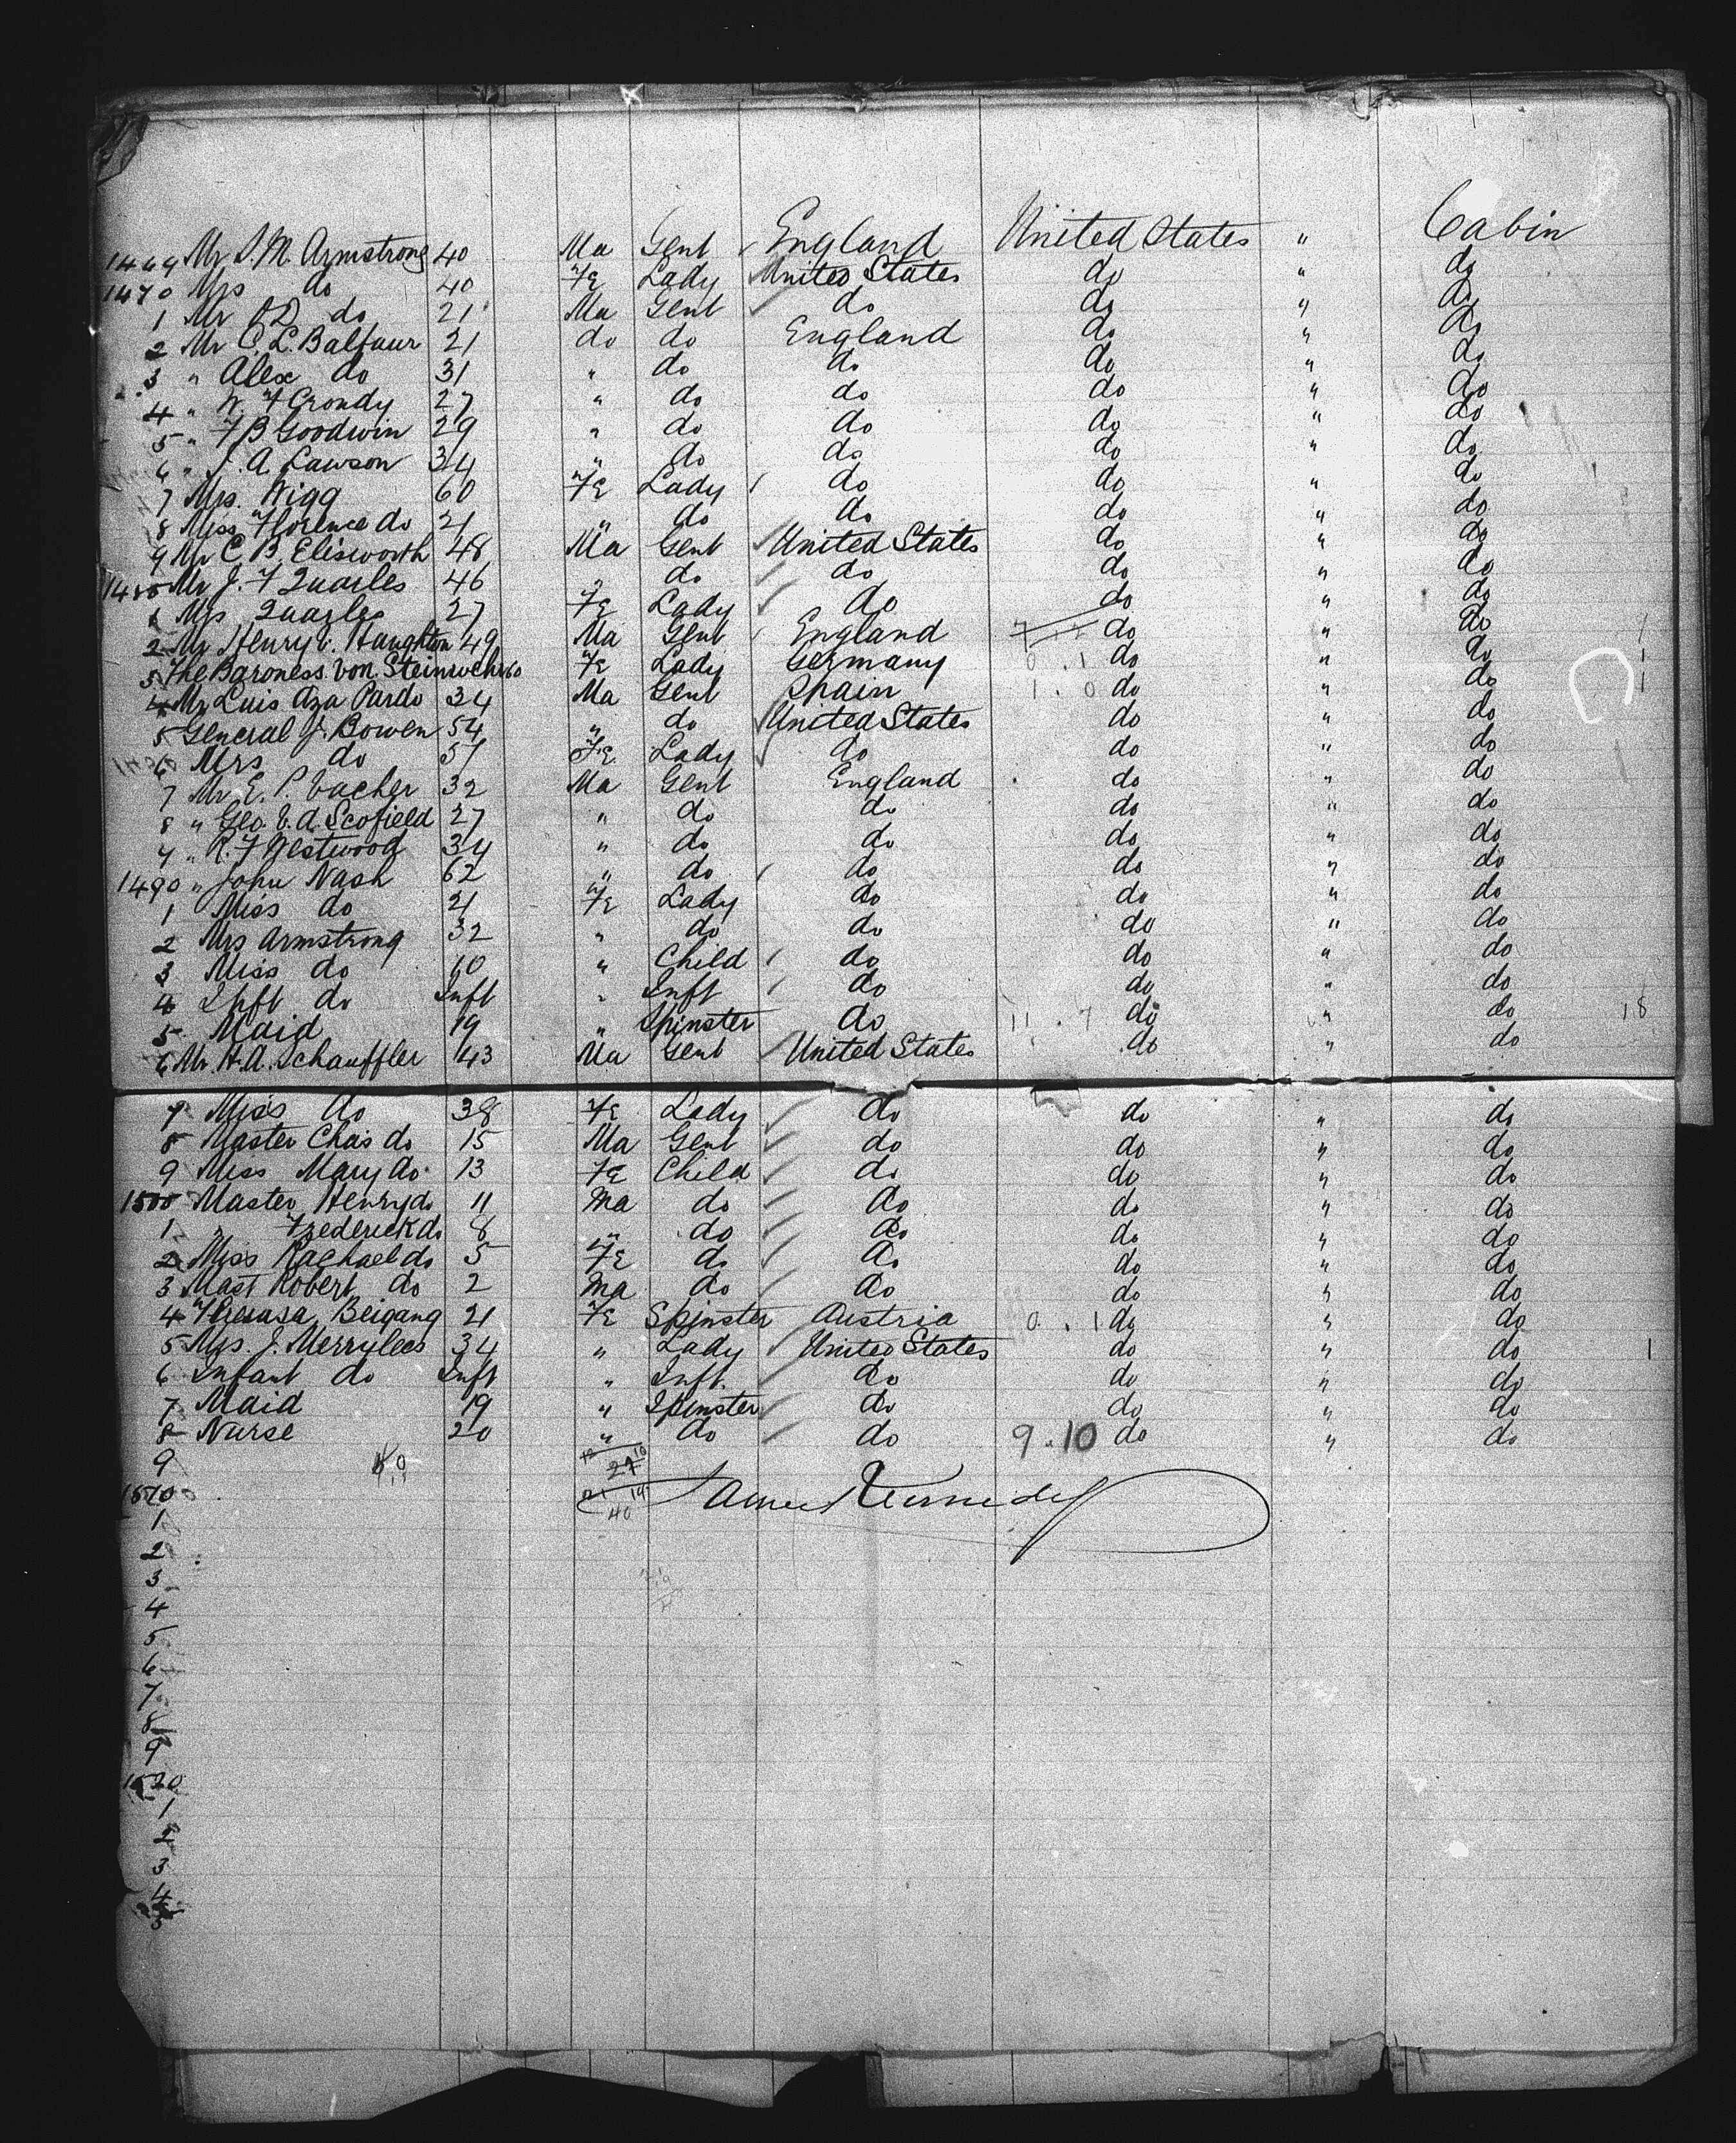 1469 Mr S. M. Armstrong 40 Ma Gent England United States " Cabin
1470 Mrs do 40 Fe Lady United States do " do
1 Mr do 21 Ma Gent do do " do
2 Mr C. L. Balfour 21 do do England do " do
3 " Alex do 31 " do do do " do
4 " W. F Grondy 27 " do do do " do
5 " F B Goodwin 29 " do do do " do
6 " J. A. Lawson 34 " do do do " do
7 Mrs. Wigg 60 Fe Lady do do " do
8 Miss Florence do 21 " do do do " do
9 Mr C. B. Elisworth 48 Ma Gent United States do " do
1480 Mr J. F Quarles 46 do do do " do
1 Mrs Quarles 27 Fe Lady do do " do
2 Mr Henry V. Haughton 49 Ma Gent England do " do 1
3 The Baroness Von Steinwehr 60 Fe Lady Germany 0 . 1 do " do 1
4 Mr Luis Aza Pardo 34 Ma Gent Spain 1 . 0 do " do 1
5 General J. Bowen 54 " do United States do " do
6 Mrs do 51 Fe Lady do do " do
7 Mr E. P. Vacher 32 Ma Gent England do " do
8 " Geo. E. A. Scofield 27 " do do do " do
9 " R. F Westwood 34 " do do do " do
1490 " John Nash 62 " do do do " do
1 Miss do 21 Fe Lady do do " do
2 Mrs Armstrong 32 " do do do " do
3 Miss do 10 " Child do do " do
4 Inft do Inft " Inft do do " do
5 Maid 19 " Spinster do 11 . 7 do " do 18
6 Mr. H. A. Schauffler 43 Ma Gent United States do " do
7 Miss do 38 Fe Lady do do " do
8 Master Chas do 15 Ma Gent do do " do
9 Miss Mary do 13 Fe Child do do " do
1500 Master Henry do 11 Ma do do do " do
1 " Frederick do 8 " do do do " do
2 Miss Rachael do 5 Fe do do do " do
3 Mast Robert do 2 Ma do do do " do
4 Theresa Beigang 21 Fe Spinster Austria 0 . 1 do " do
5 Mrs. J. Merrylees 34 " Lady United States do " do 1
6 Infant do Inft " Inft. do do " do
7 Maid 19 " Spinster do do " do
8 Nurse 20 " do do 9 . 10 do " do
9
27
1510 40 James Kennedy
1
2
3
4
5
6
7
8
9
1520
1
2
3
4
5